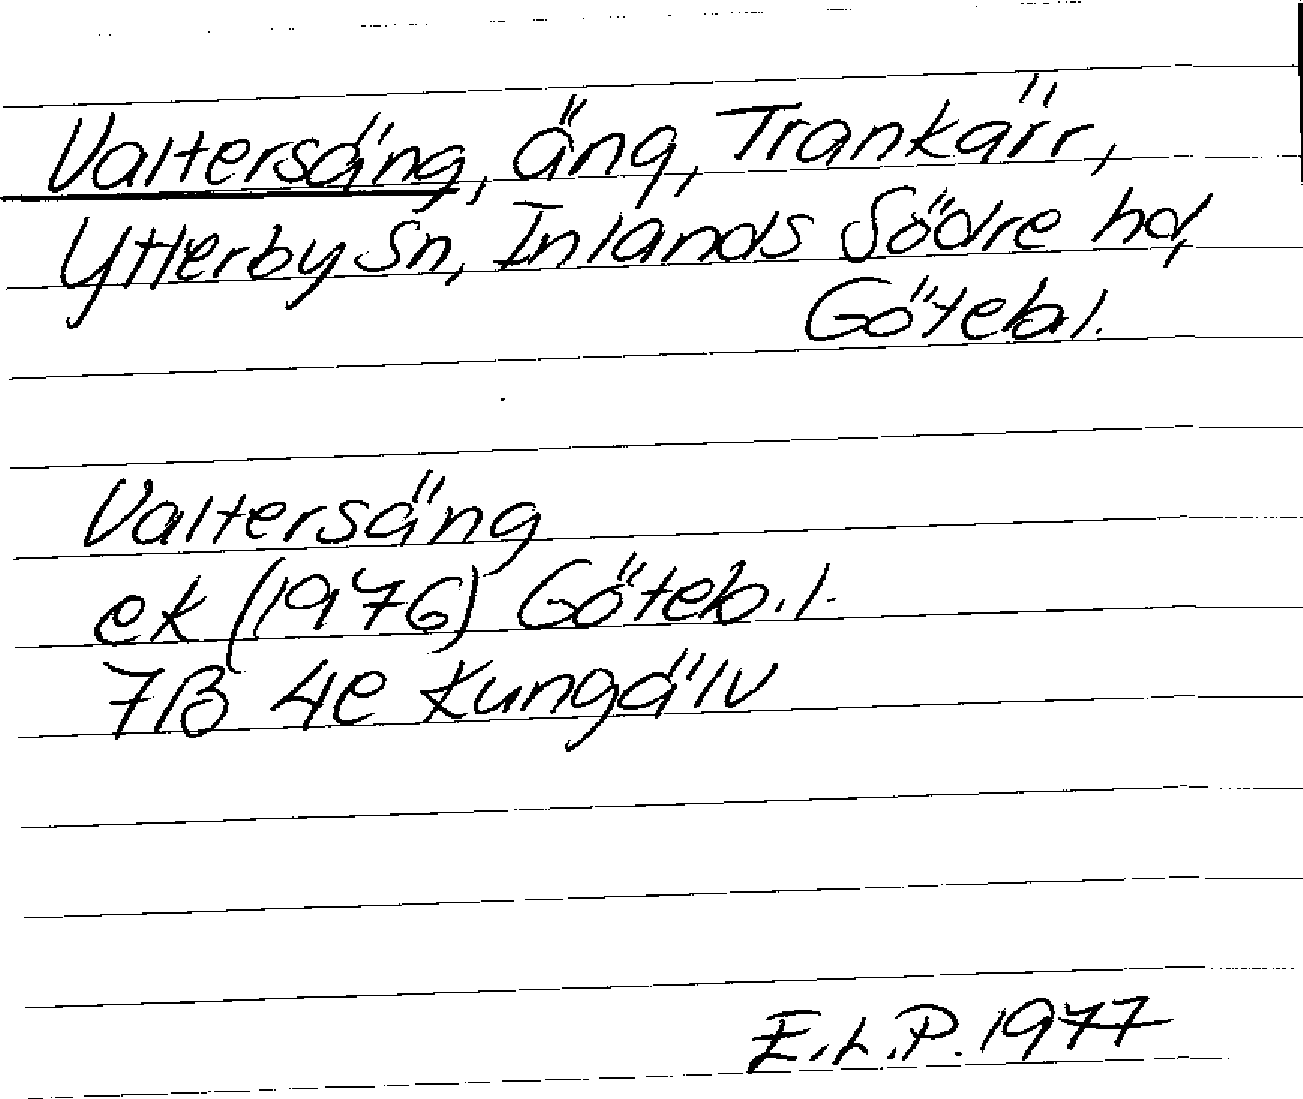 Valtersäng, äng, Trankärr,
Ytterby Sn, Inlands Södre hd,
Göteb l.
Valtersäng
ek (1976) Göteb. l.
7B 4e Kungälv
E.L.P. 1977